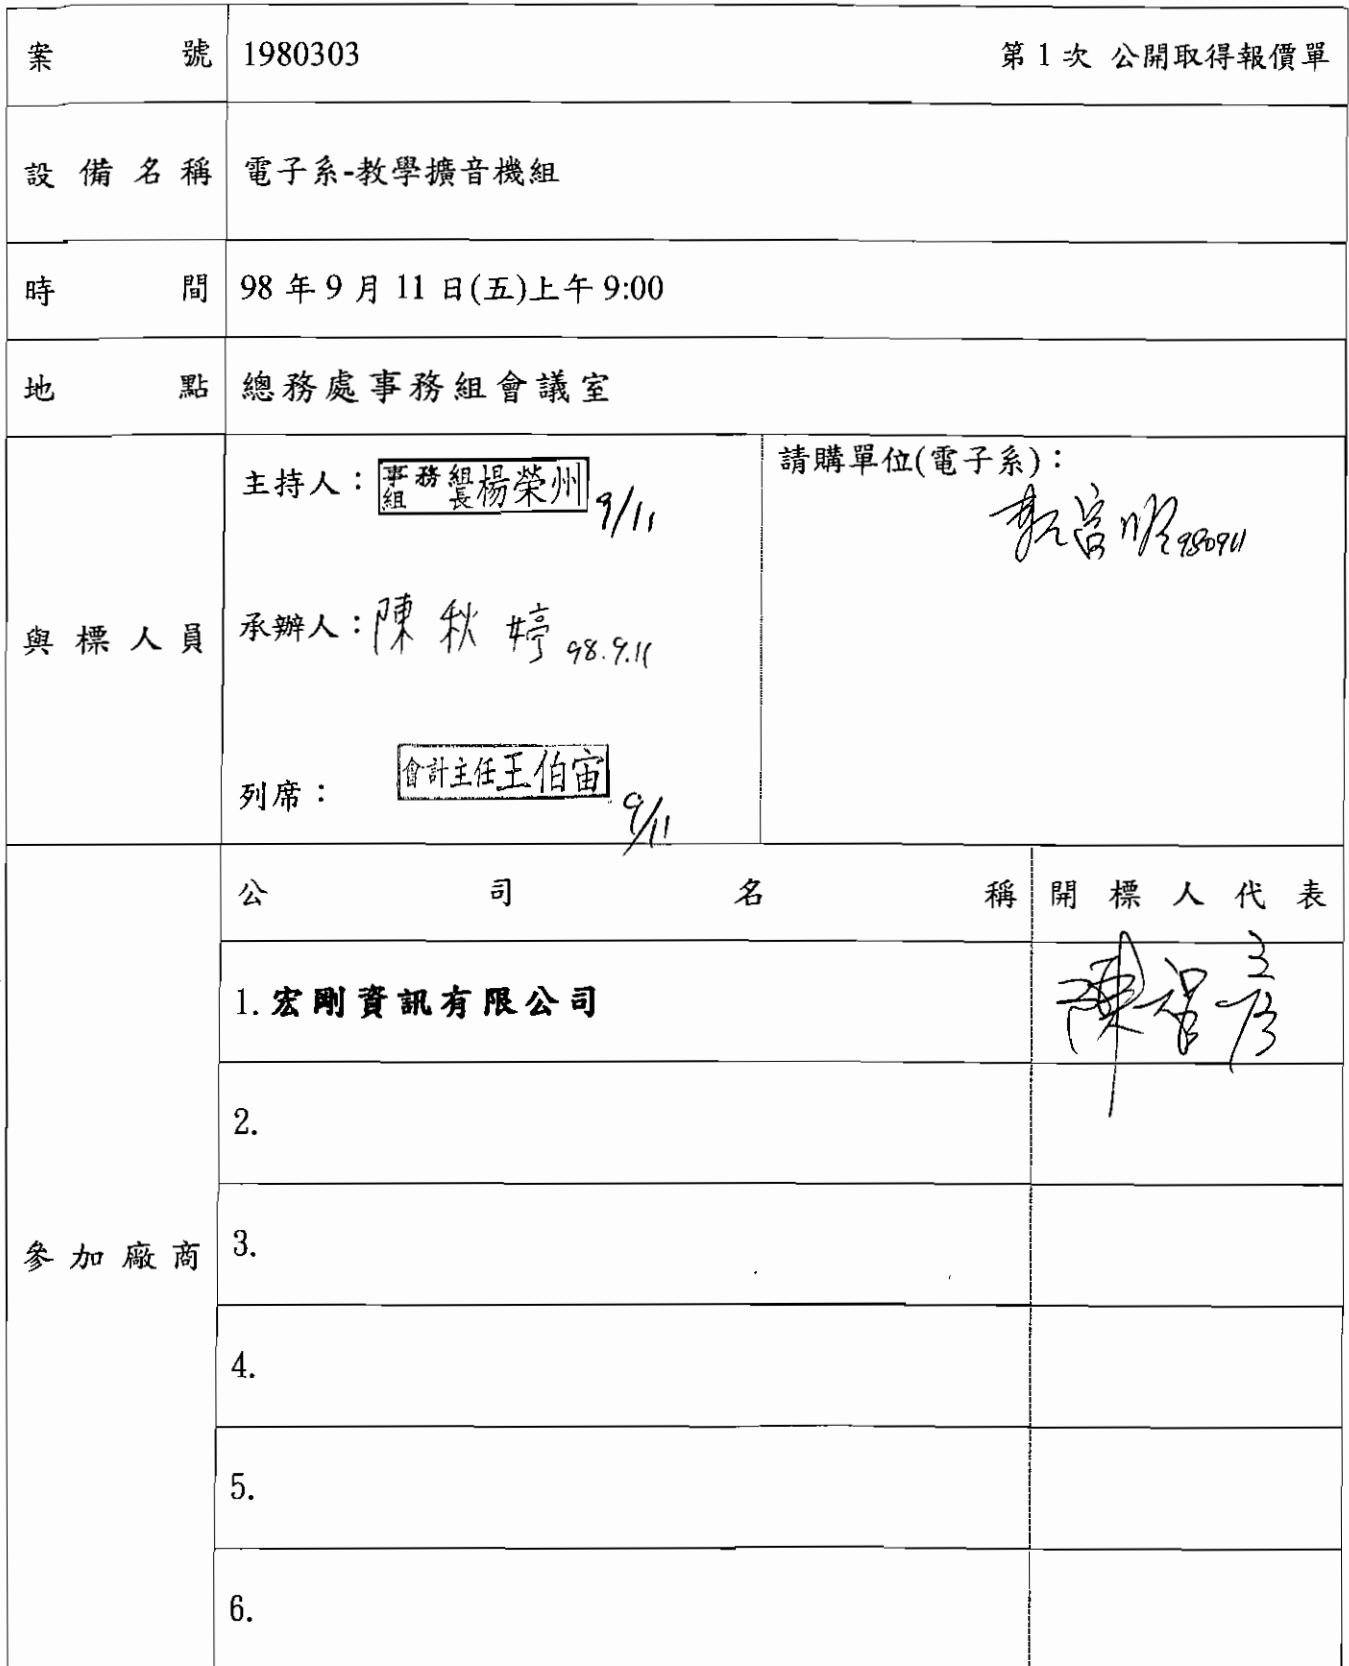 案號 1980303 第 1 次 公開取得報價單
設備名稱 電子系-教學擴音機組
時間 98 年 9 月 11 日(五)上午 9:00
地點 總務處事務組會議室
與標人員
主持人：事務組組長楊榮州 9/11
承辦人：陳秋婷 98.9.11
列席： 會計主任王伯宙 9/11
請購單位(電子系)：
富明 980911
參加廠商
公司名稱 開標人代表
1. 宏剛資訊有限公司 陳智彥
2.
3.
4.
5.
6.